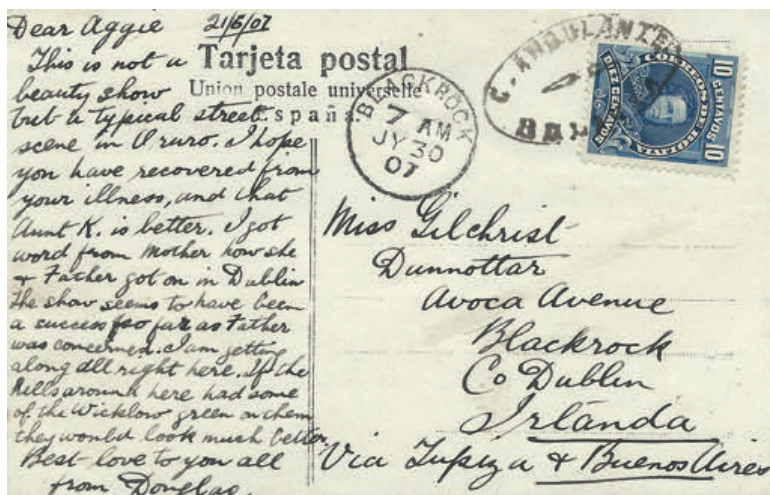 Dear Aggie 21/6/07
This is not a
beauty show
but a typical street
scene in Oruro. I hope
you have recovered from
your illness, and that
Aunt K. is better. I got
word from Mother how she
+ Father got on in Dublin
The show seems to have been
a success so far as Father
was concerned. I am getting
along all right here. If the
hills around here had some
of the Wicklow green on them
they would look much better
Best love to you all
from Douglas.
Tarjeta postal
Union postale universelle
España.
BLACKROCK
7 AM
JY 30
07
C. AMBULANTE
CORREOS DE BOLIVIA
DIEZ CENTAVOS
10 CENTAVOS 10
Miss Gilchrist
Dunnottar
Avoca Avenue
Blackrock
Co Dublin
Irlanda
Via Tupiza + Buenos Aires